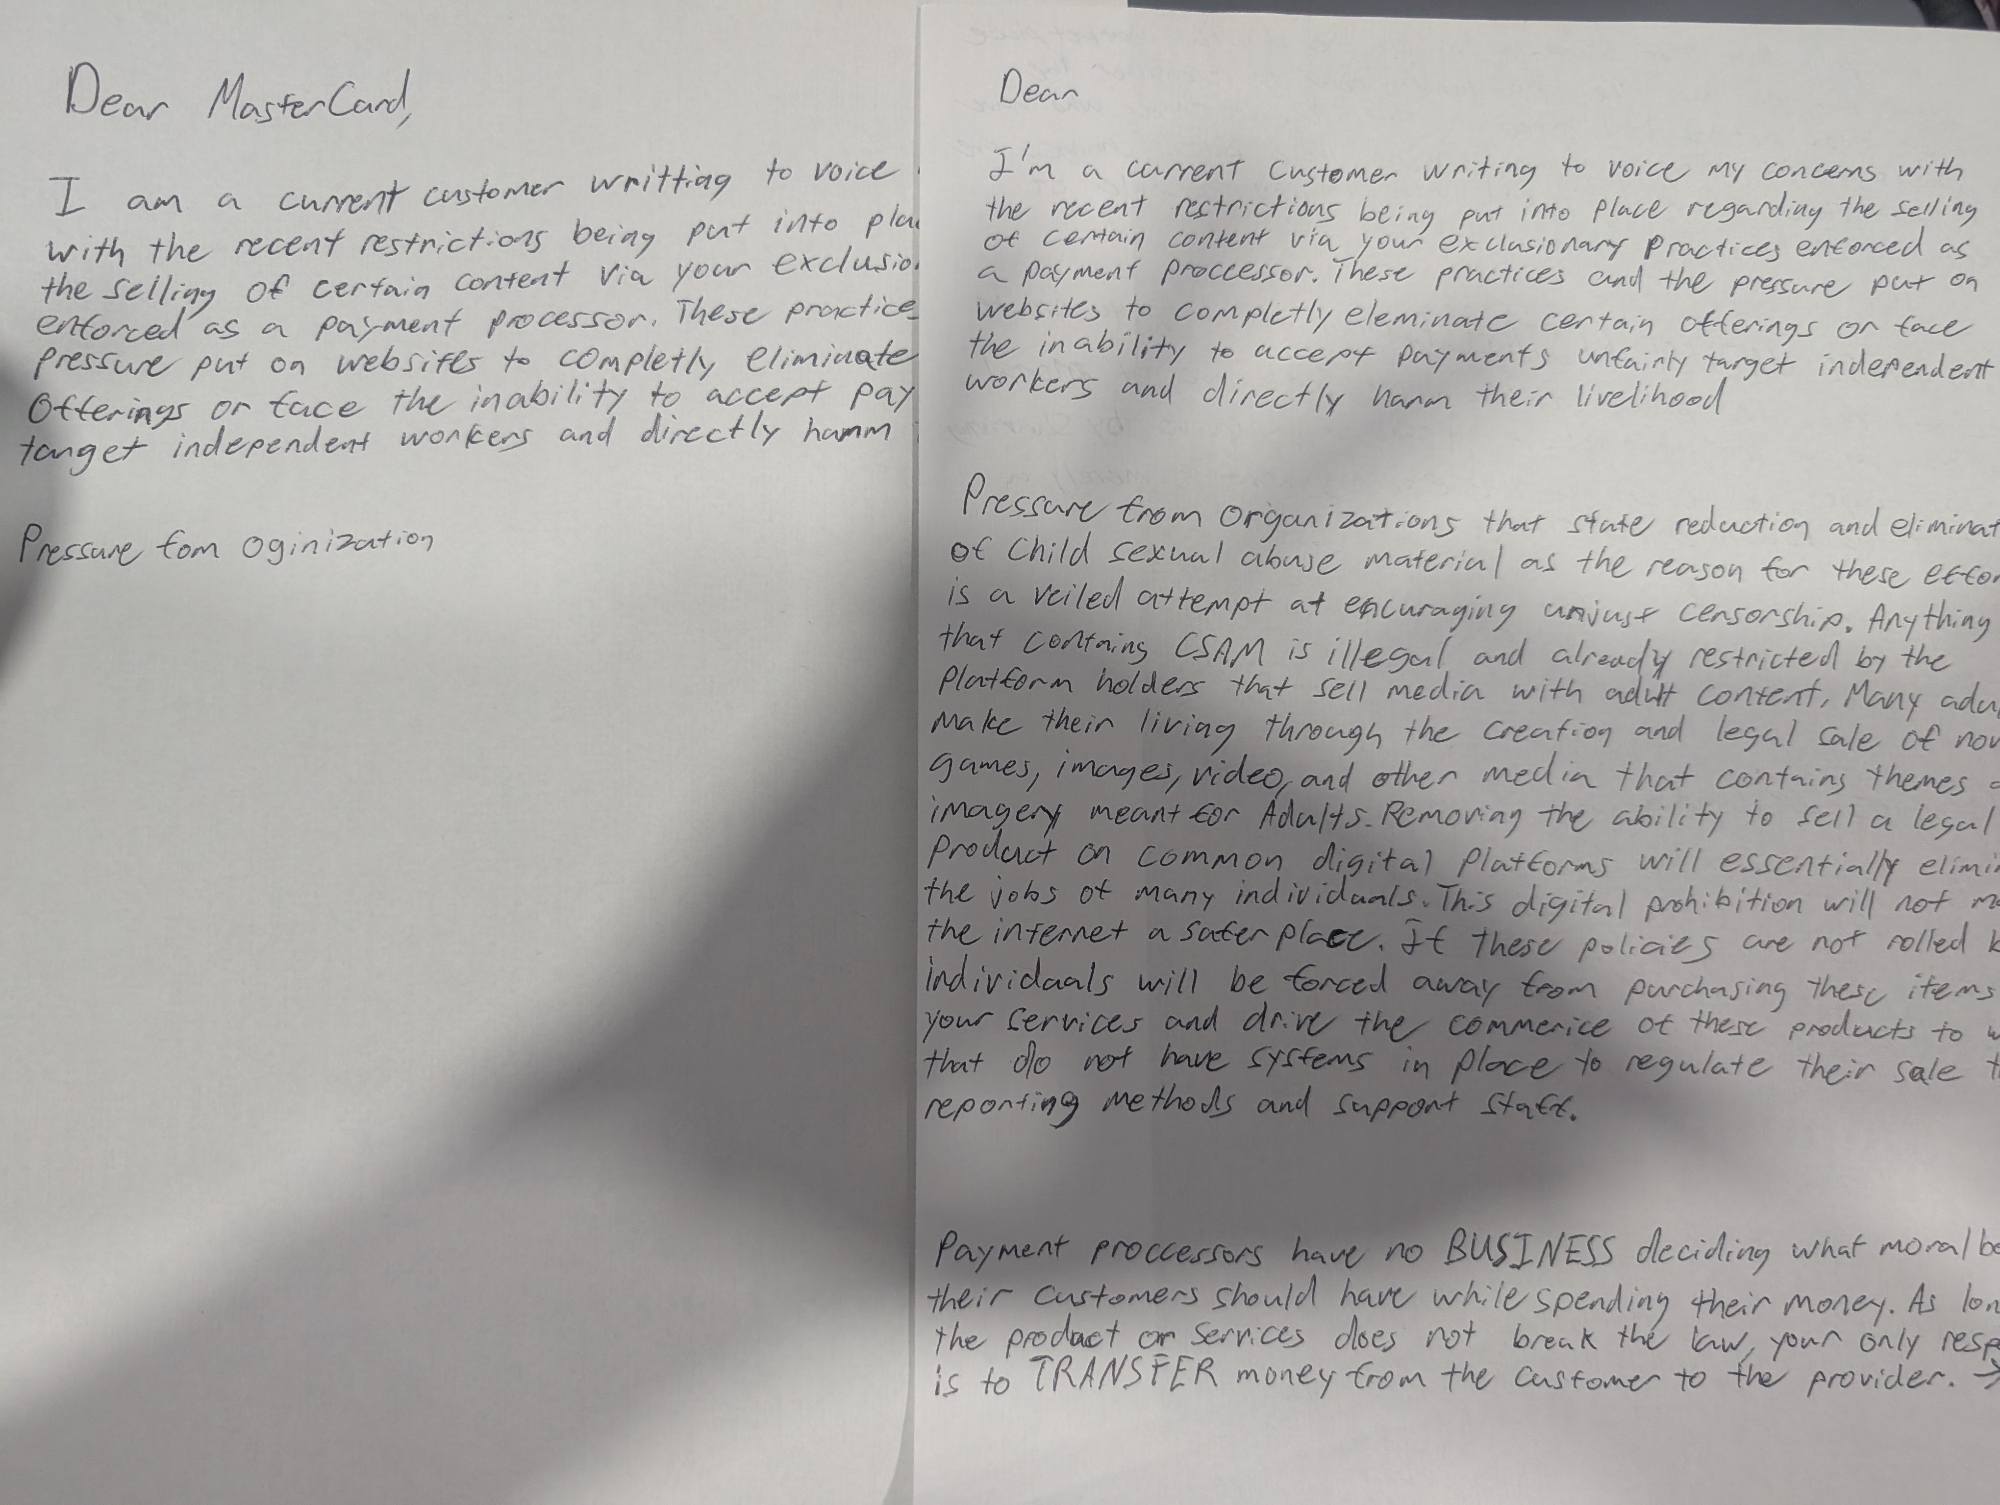 Dear MasterCard,
I am a current customer writting to voice
with the recent restrictions being put into
the selling of certain content via your
enforced as a payment processor. These
pressure put on websites to completly eliminate
Offerings or face the inability to accept
target independent workers and directly harm
Pressure fom Oginization
Dear
I'm a current customer writing to voice my concerns with
the recent restrictions being put into place regarding the selling
of certain content via your exclusionary practices enforced as
a payment proccessor. These practices and the pressure put on
websites to completly eleminate certain offerings or face
the inability to accept payments unfairly target independent
workers and directly harm their livelihood
Pressure from Organizations that state reduction and
of Child sexual abuse material as the reason for these
is a veiled attempt at encuraging unjust censorship. Anything
that contains CSAM is illegal and already restricted by the
Platform holders that sell media with adult content. Many
make their living through the creation and legal sale of
games, images, video, and other media that contains themes
imagery meant for Adults. Removing the ability to sell a legal
Product on common digital platforms will essentially
the jobs of many individuals. This digital prohibition will not
the internet a safer place. If these policies are not rolled
individuals will be forced away from purchasing these items
your services and drive the commerice of these products to
that do not have systems in place to regulate their sale
reporting methods and support staff.
Payment proccessors have no BUSINESS deciding what moral
their customers should have while spending their money. As
the product or services does not break the law, your only
is to TRANSFER money from the customer to the provider. →